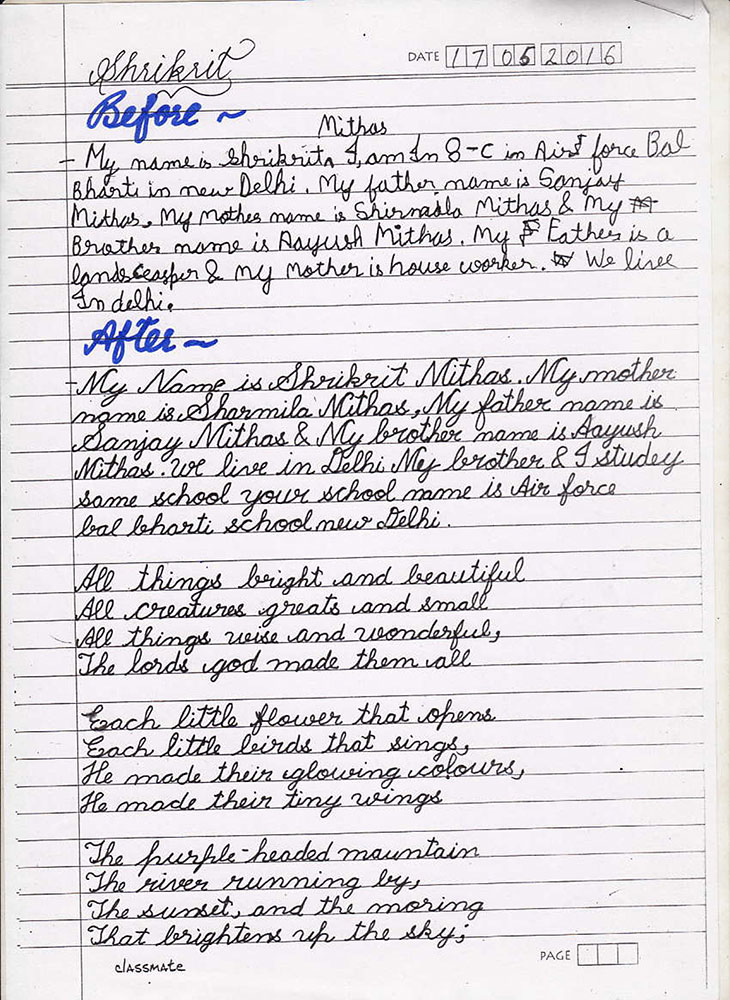 Shrikrit
DATE 17 05 2016
Before ~
Mithas
- My name is Shrikrit, I, am In 8-C in Air force Bal
Bharti in new Delhi. My father name is Sanjay
Mithas, My Mother name is Shirmala Mithas & My
Brother name is Aayush Mithas. My Father is a
landsceasper & My Mother is house worker. We livee
In delhi.
After ~
- My Name is Shrikrit Mithas. My mother
name is Sharmila Mithas, My father name is
Sanjay Mithas & My brother name is Aayush
Mithas. We live in Delhi My brother & I studey
same school your school name is Air force
bal bharti school new Delhi.
All things bright and beautiful
All creatures greats and small
All things wise and wonderful,
The lords god made them all
Each little flower that opens
Each little birds that sings,
He made their glowing colours,
He made their tiny wings
The purple-headed mauntain
The river running by,
The sunset, and the moring
That brightens up the sky;
PAGE
classmate